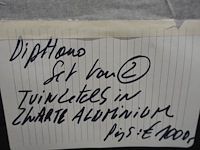 DipHono
Set von ②
TUINZETELS IN
ZWARTE ALUMINIUM
Prijs: € 1000,